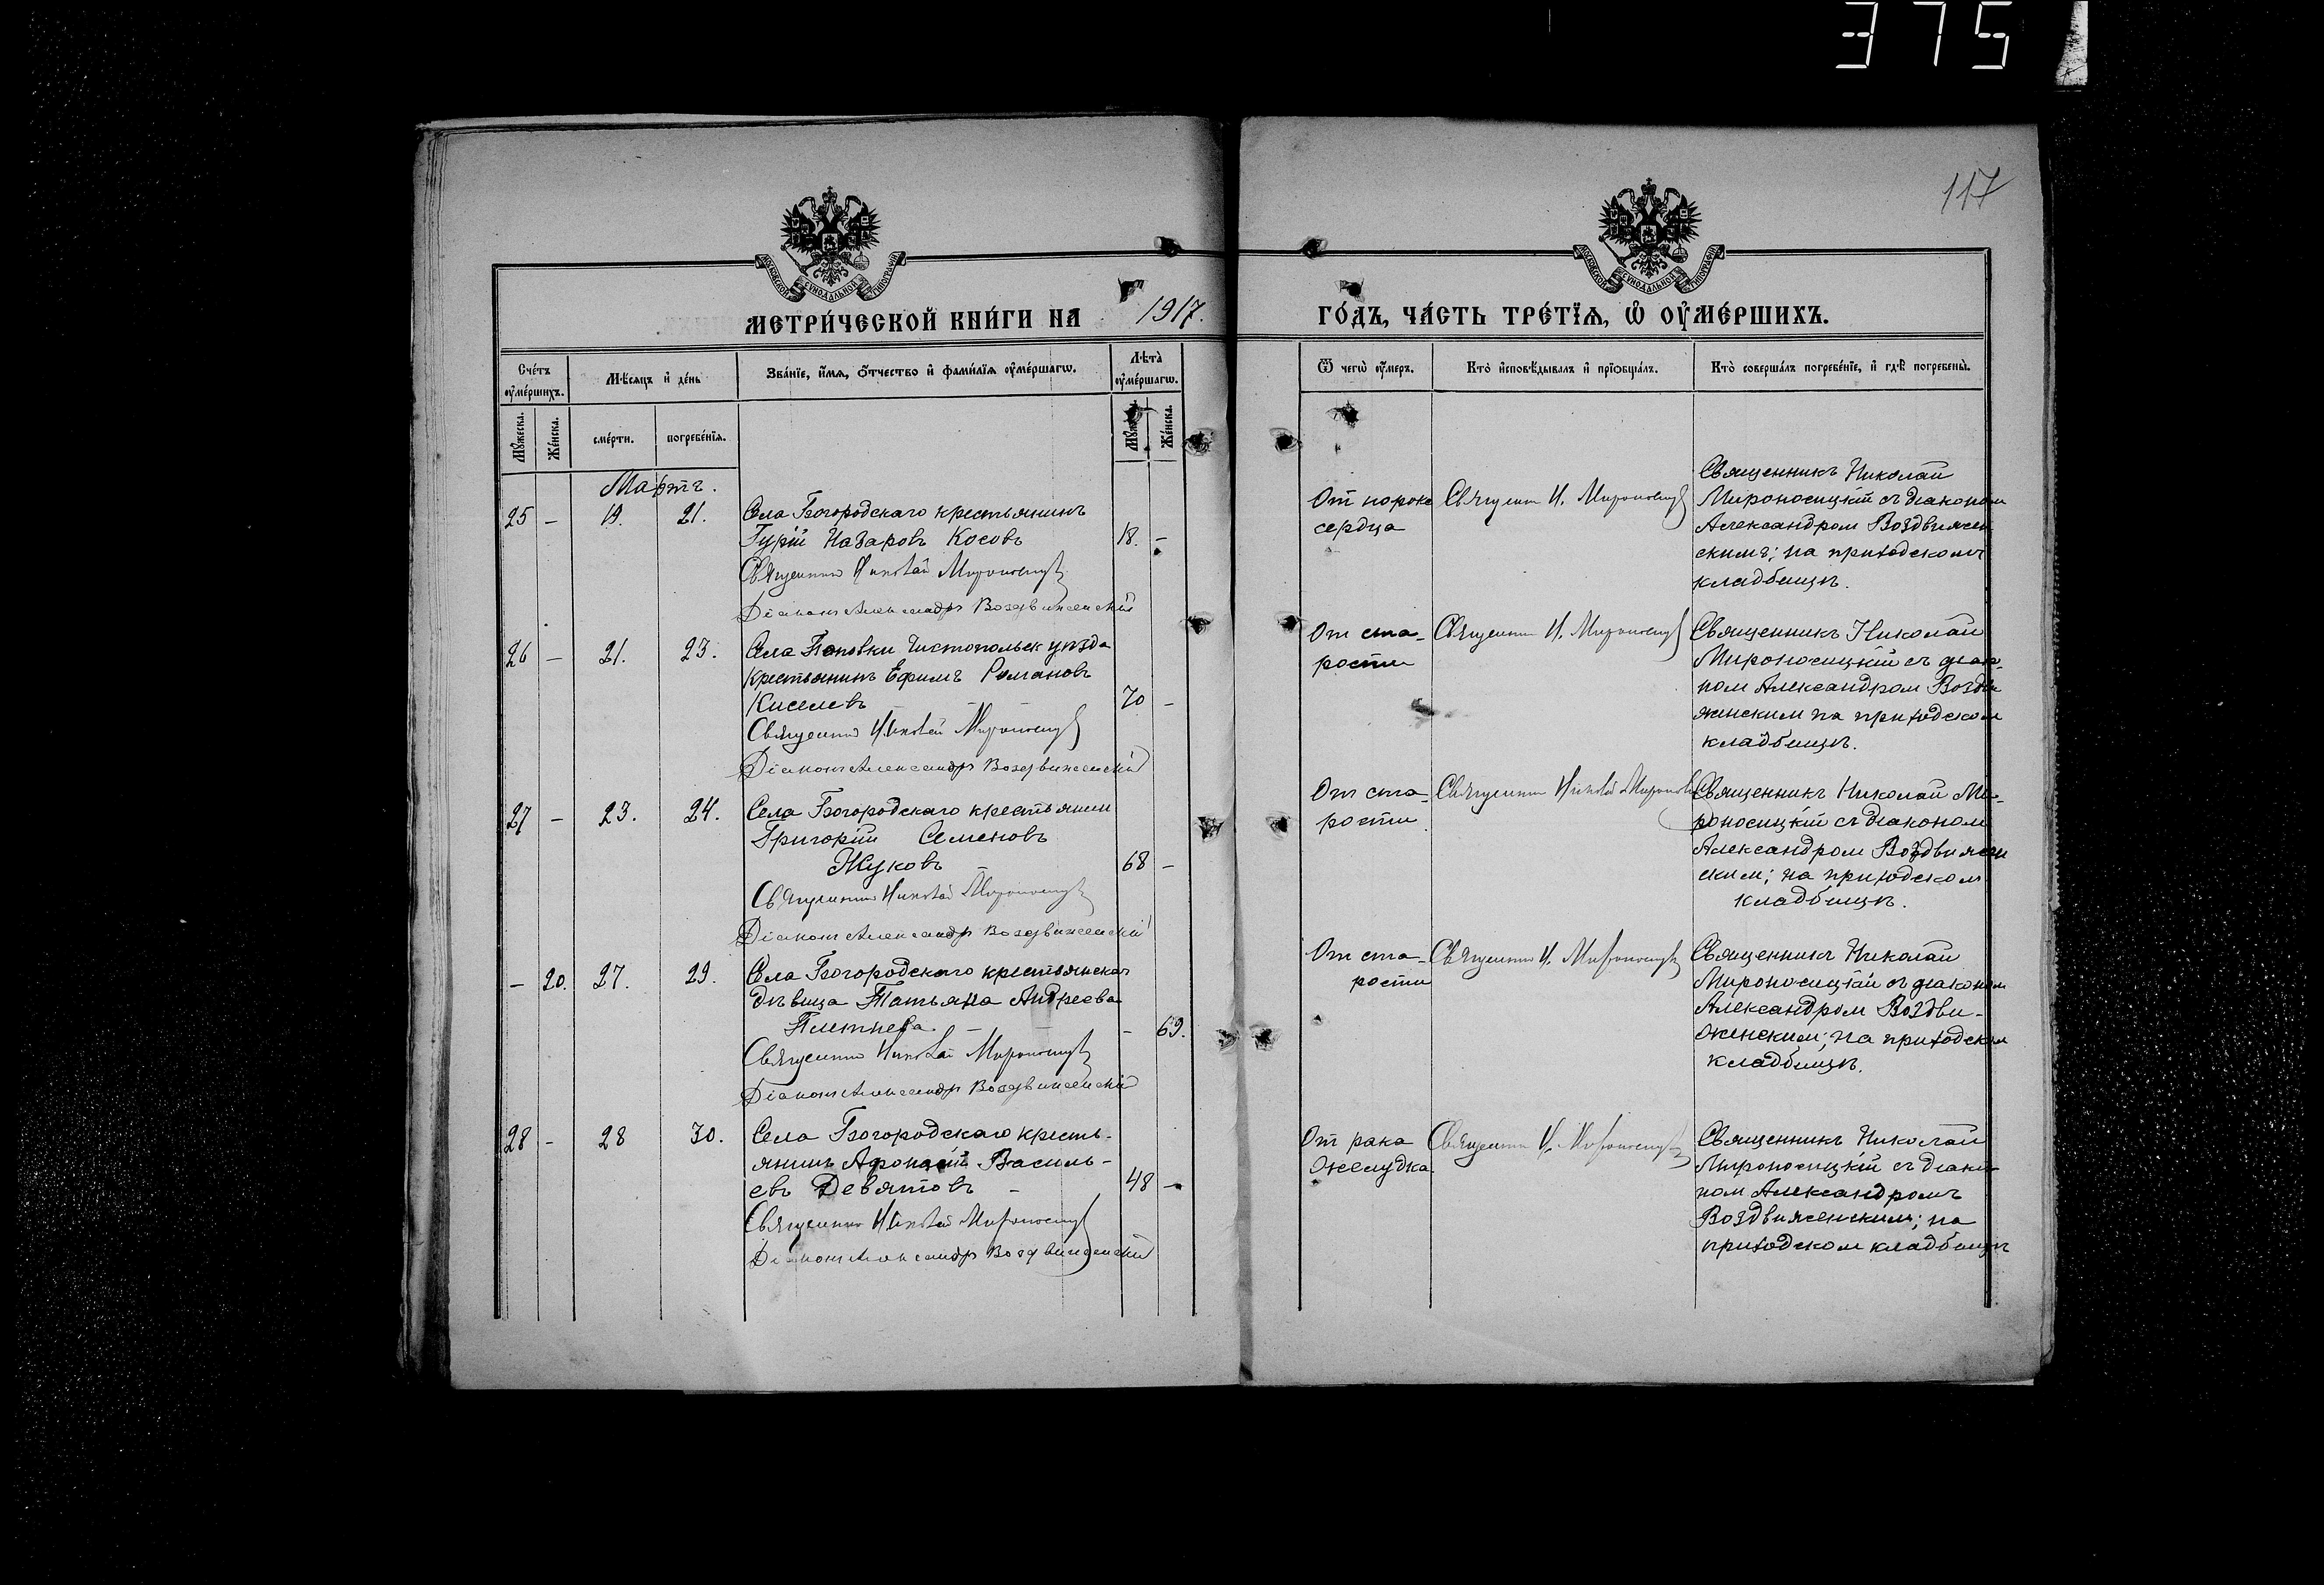 375
117
МОСКОВСКОЙ СѴНОДАЛЬНОЙ ТИПОГРАФІИ
МОСКОВСКОЙ СѴНОДАЛЬНОЙ ТИПОГРАФІИ
МЕТРИ́ЧЕСКОЙ КНИ́ГИ НА 1917.
ГО́ДЪ, ЧА́СТЬ ТРЕ́ТЇѦ, Ѡ҆ ОУ҆МЕ́РШИХЪ.
Сче́тъ оу҆ме́ршихъ.
Мѣ́сѧцъ и҆ де́нь
Зва́нїе, и҆́мѧ, ѻ҆́тчество и҆ фами́лїѧ оу҆ме́ршагѡ.
Лѣ́та̀ оу҆ме́ршагѡ.
Ѿ чегѡ̀ оу҆́меръ.
Кто̀ и҆сповѣ́дывалъ и҆ прїѻбща́лъ.
Кто̀ соверша́лъ погребе́нїе, и҆ гдѣ̀ погребены̀.
Мꙋ́жеска.
Же́нска.
сме́рти.
погребе́нїѧ.
Же́нска.
Мартъ.
25 – 19. 21. Села Богородскаго крестьянинъ
Гурій Назаровъ Косовъ 18. –
Священник Николай Мироносицкій
Діаконъ Александръ Воздвиженскій
От порока
сердца
Священник Н. Мироносицкій
Священникъ Николай
Мироносицкій съ діаконом
Александром Воздвижен
скимъ; на приходскомъ
кладбищѣ.
26 – 21. 23. Села Поповки Чистопольск уѣзда
крестьянинъ Ефимъ Романовъ
Киселевъ 70 –
Священник Николай Мироносицкій
Діаконъ Александръ Воздвиженскій
От ста-
рости
Священник Н. Мироносицкій
Священникъ Николай
Мироносицкій съ діако-
ном Александром Воздви
женским на приходском
кладбищѣ.
27 – 23. 24. Села Богородскаго крестьянин
Григорій Семеновъ
Жуковъ – 68 –
Священник Николай Мироносицкій
Діаконъ Александръ Воздвиженскій
От ста-
рости
Священник Николай Мироносицкій
Священникъ Николай Ми-
роносицкій съ діаконом
Александром Воздвижен
ским; на приходском
кладбищѣ.
– 20. 27. 29. Села Богородскаго крестьянская
дѣвица Татьяна Андреева
Плетнева. – – 69.
Священник Николай Мироносицкій
Діаконъ Александръ Воздвиженскій
От ста-
рости
Священник Н. Мироносицкій
Священникъ Николай
Мироносицкій съ діаконом
Александром Воздви-
женским; на приходском
кладбищѣ.
28 – 28 30. Села Богородскаго кресть-
янинъ Афонасій Василь-
евъ Девятовъ – 48 –
Священник Николай Мироносицкій
Діаконъ Александръ Воздвиженскій
От рака
желудка
Священник Н. Мироносицкій
Священникъ Николай
Мироносицкій съ діако-
ном Александромъ
Воздвиженским; на
приходском кладбищѣ